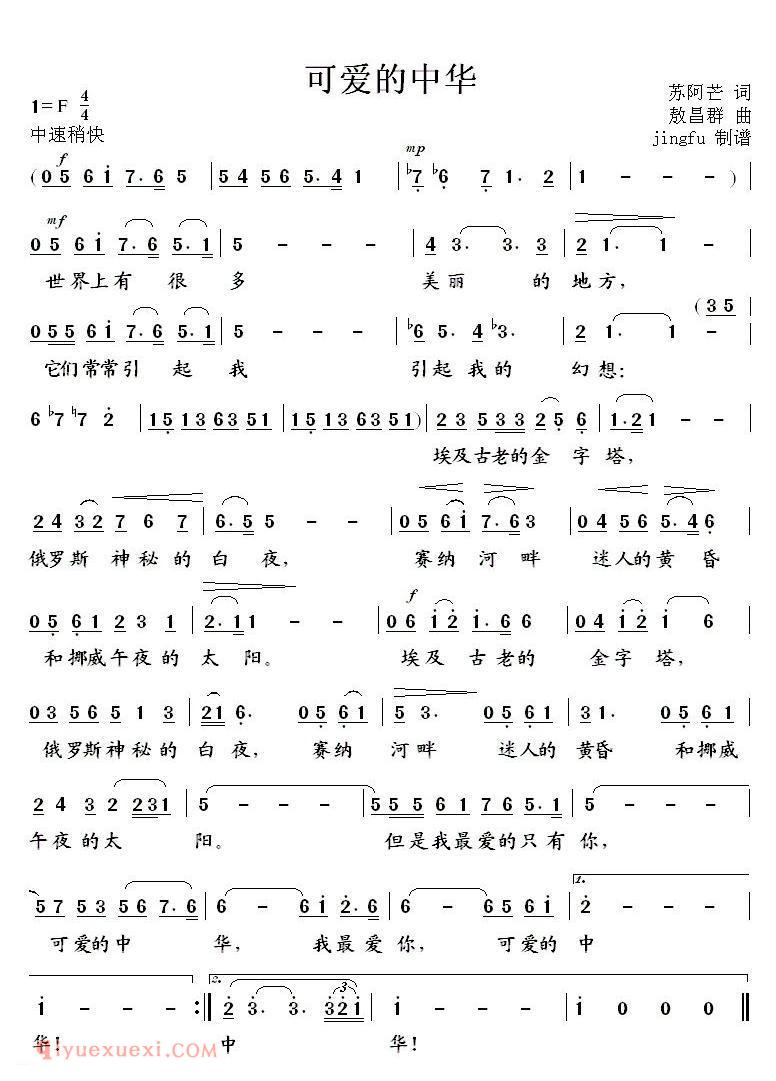 可爱的中华
1=F 4/4
苏阿芒 词
中速稍快
敖昌群 曲
jingfu 制谱
f mp
(0 5 6 i 7. 6 5 | 5 4 5 6 5. 4 1 | b7 b6 7 1. 2 | 1 - - - )
mf
0 5 6 i 7. 6 5. 1 | 5 - - - | 4 3. 3. 3 | 2 1. 1 - |
世界上有 很 多 美 丽 的 地 方,
(3 5
0 5 5 6 i 7. 6 5. 1 | 5 - - - | b6 5. 4 b3. | 2 1. 1 - |
它们常常引 起 我 引 起 我 的 幻 想:
6 b7 ♮7 2 | 1 5 1 3 6 3 5 1 | 1 5 1 3 6 3 5 1) | 2 3 5 3 3 2 5 6 | 1. 2 1 - - |
埃及古老的金 字 塔,
2 4 3 2 7 6 7 | 6. 5 5 - - | 0 5 6 i 7. 6 3 | 0 4 5 6 5. 4 6 |
俄罗斯 神 秘 的 白 夜, 赛 纳 河 畔 迷 人的 黄 昏
f
0 5 6 1 2 3 1 | 2. 1 1 - - | 0 6 i 2 i. 6 6 | 0 4 i 2 i 6 |
和挪威午夜 的 太 阳。 埃及 古 老的 金 字 塔,
0 3 5 6 5 1 3 | 2 1 6. 0 5 6 1 | 5 3. 0 5 6 1 | 3 1. 0 5 6 1 |
俄罗斯神秘 的 白 夜, 赛 纳 河 畔 迷 人的 黄昏 和挪威
2 4 3. 2 2 3 1 | 5 - - - | 5 5 5 6 1 7 6 5. 1 | 5 - - - |
午夜 的 太 阳。 但是我最爱的只 有 你,
1.
5 7 5 3 5 6 7. 6 | 6 - - 6 i 2. 6 | 6 - 6 5 6 i | 2 - - - |
可爱的 中 华, 我 最 爱 你, 可爱的 中
2. 3
i - - - :|| 2 3. 3. 3 2 i | i - - - | i 0 0 0 ||
华! 中 华!
qiyuexuexi.com